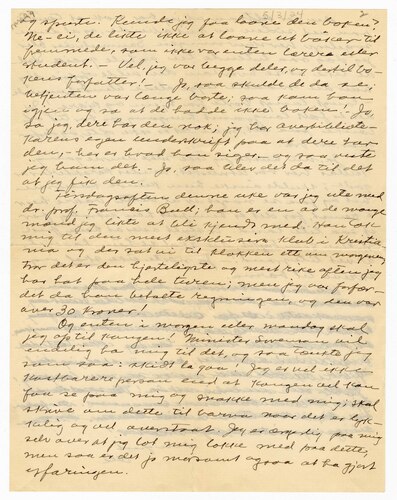 og spurte. Kunde jeg faa laane den boken?
Ne-ei, de likte ikke at laane ut bøker til
fremmede, som ikke var enten lærere eller
student. — Vel, jeg var begge deler, og dertil bo-
kens forfatter! — Jo, saa skulde de da se;
betjenten var længe borte; saa kom han
igjen og sa at de hadde ikke boken! Jo,
sa jeg, dere har den nok; jeg har overbibliote-
karens egen underskrift paa at dere har
den, — her er hvad han siger — og saa viste
jeg ham det. — Jo, saa blev det da til det
at jeg fik den.
Tirsdagsaften denne uke var jeg ute med
dr. prof. Francis Bull; han er en av de mange
mænd jeg likte at bli kjendt med. Han tok
mig til den mest eksklusive klub i Kristia-
nia og der sat vi til klokken ett om morgenen.
Tror det er den hjerteligste og mest rike aften jeg
har hat paa hele turen; men jeg var forfær-
det da han betalte regningen, og den var
over 30 kroner!
Og enten i morgen eller mandag skal
jeg op til kongen! Minister Swenson vil
endelig ha mig til det, og saa tænkte jeg
som saa: skidt la gaa. Jeg er vel ikke
kostbarere person end at kongen vel kan
faa se paa mig og snakke med mig; skal
skrive om dette til barna naar det er lyk-
kelig og vel overstaat. Jeg er ærgerlig paa mig
selv over at jeg lot mig lokke med paa dette,
men saa er det jo morsomt ogsaa at ha gjort
erfaringen.